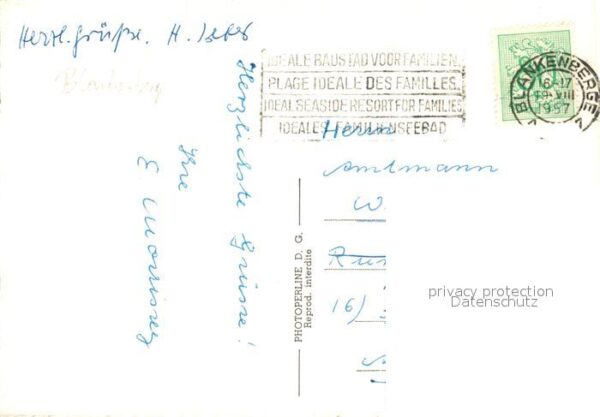 Herzl. Grüße. H.
IDEALE BADSTAD VOOR FAMILIEN.
PLAGE IDEALE DES FAMILLES.
IDEAL SEASIDE RESORT FOR FAMILIES
IDEALES FAMILIENSEEBAD
BLANKENBERGE
16-17
VIII
1957
1 1
Herzlichste Grüsse!
Ihre
E
PHOTOPERLINE D. G.
Reprod. interdite
Herrn
Amtmann
W.
16)
privacy protection
Datenschutz